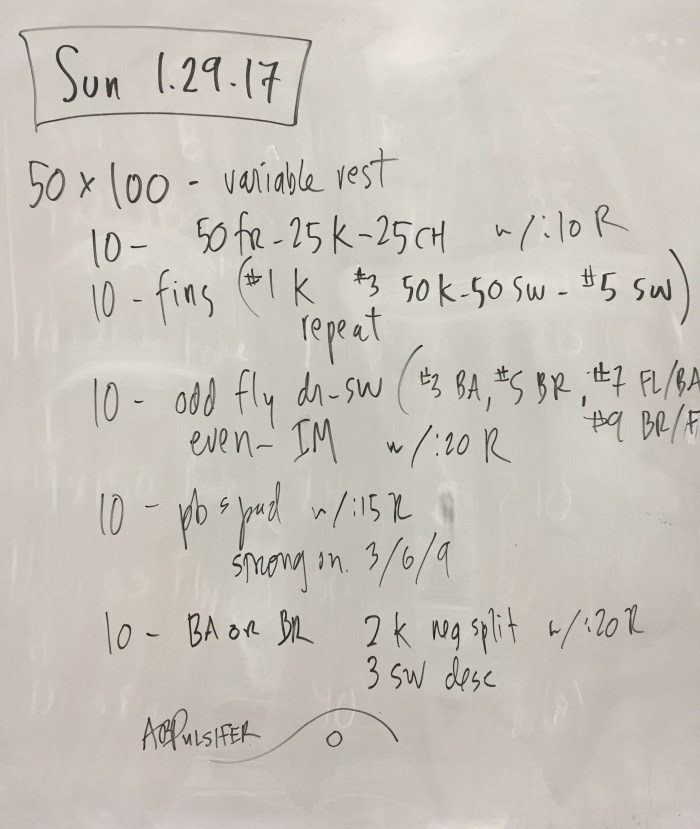 Sun 1.29.17
50 x 100 - variable rest
10 - 50 fr - 25 K - 25 CH w/:10 R
10 - fins (#1 K #3 50 K - 50 SW - #5 SW)
repeat
10 - odd fly dr-sw (#3 BA, #5 BR, #7 FL/BA
even - IM w/:20 R #9 BR/F
10 - pb s pad w/:15 R
strong on 3/6/9
10 - BA OR BR 2 K neg split w/:20 R
3 SW desc
PULSIFER